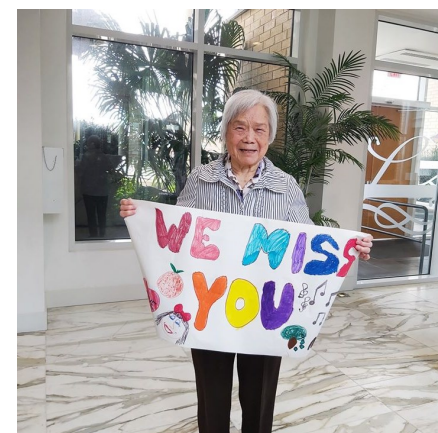 WE MISS
YOU